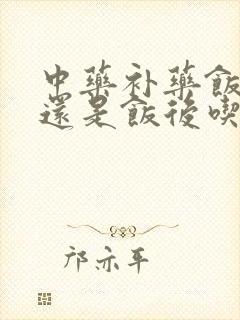 中藥补藥飯
還是飯後喫
邝亦平